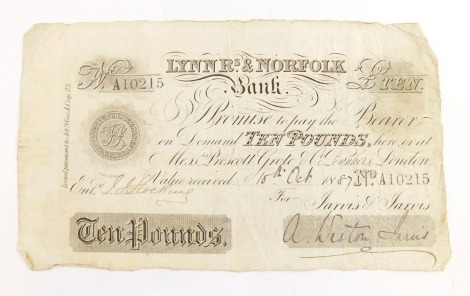 Nº A10215 LYNN Rs. & NORFOLK £ TEN.
Bank.
I Promise to pay the Bearer
on Demand TEN POUNDS, here, or at
Messrs Prescott Grote & Co. Bankers London.
Value received 10th Oct 1887 No A10215
Entd.
For Jarvis & Jarvis
Ten Pounds. A. Weston Jarvis